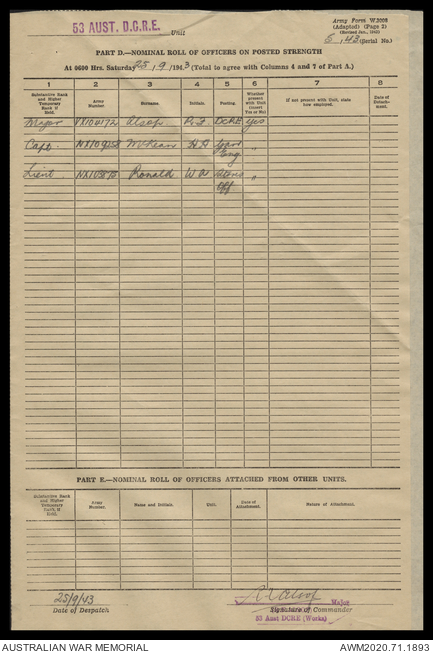 53 AUST. D.C.R.E. Unit
Army Form W.3008
(Adapted) (Page 2)
(Revised Jan., 1943)
5, 43 (Serial No.)
PART D.—NOMINAL ROLL OF OFFICERS ON POSTED STRENGTH
At 0600 Hrs. Saturday 25, 9 /1943 (Total to agree with Columns 4 and 7 of Part A.)
1 2 3 4 5 6 7 8
Substantive Rank and Higher Temporary Rank if Held. Army Number. Surname. Initials. Posting. Whether present with Unit (insert Yes or No) If not present with Unit, state how employed. Date of Detachment.
Major VX104172 Alsop R.I. DCRE Yes
Capt. McKean H A Gard "
Eng.
Lieut. Ronald W A Stores "
Off.
PART E.—NOMINAL ROLL OF OFFICERS ATTACHED FROM OTHER UNITS.
Substantive Rank and Higher Temporary Rank if Held. Army Number. Name and Initials. Unit. Date of Attachment. Nature of Attachment.
25/9/43
Date of Despatch
RIAlsop Major
Signature of Commander
53 Aust DCRE (Works)
AUSTRALIAN WAR MEMORIAL
AWM2020.71.1893